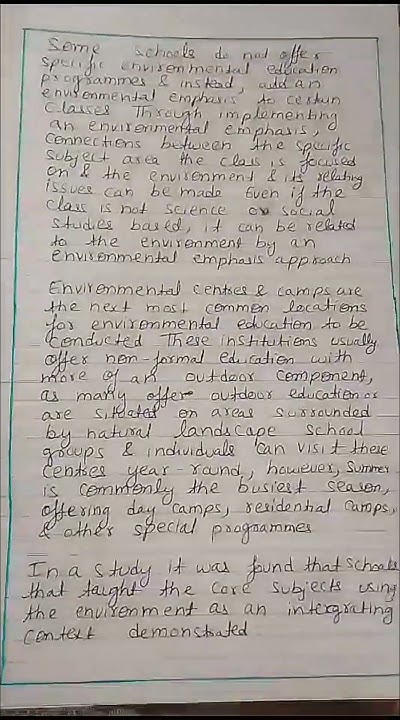 Some schools do not offer
specific environmental education
programmes & instead, add an
environmental emphasis to certain
classes Through implementing
an environmental emphasis,
connections between the specific
subject area the class is focused
on & the environment & its relating
issues can be made Even if the
class is not science or social
studies based, it can be related
to the environment by an
environmental emphasis approach
Environmental centres & camps are
the next most common locations
for environmental education to be
conducted These institutions usually
offer non-formal education with
more of an outdoor component,
as many offer outdoor education or
are situated on areas surrounded
by natural landscape school
groups & individuals can visit these
centres year-round, however, summer
is commonly the busiest season,
offering day camps, residential camps,
& other special programmes
In a study it was found that schools
that taught the core subjects using
the environment as an intergrating
context demonstrated